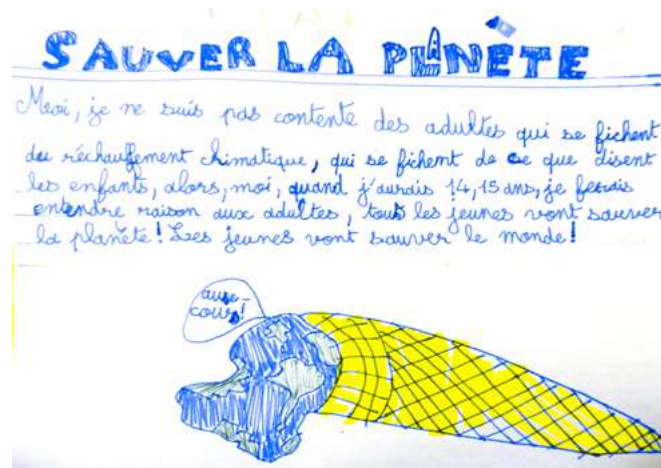 SAUVER LA PLANÈTE
Moi, je ne suis pas contente des adultes qui se fichent
du réchauffement chimatique, qui se fichent de ce que disent
les enfants, alors, moi, quand j'aurais 14,15 ans, je ferais
entendre raison aux adultes, tous les jeunes vont sauver
la planète! Les jeunes vont sauver le monde!
au se-
cours!